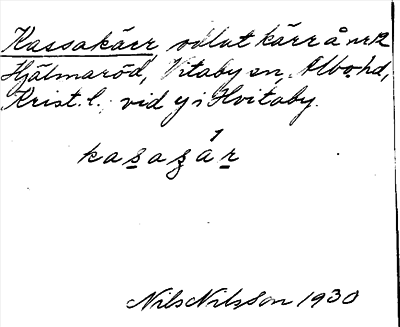 Kassakärr, odlat kärr å nr 12
Hjälmaröd, Vitaby sn, Albo hd,
Krist. l., vid y i Hvitaby.
kasagár
Nils Nilsson 1930